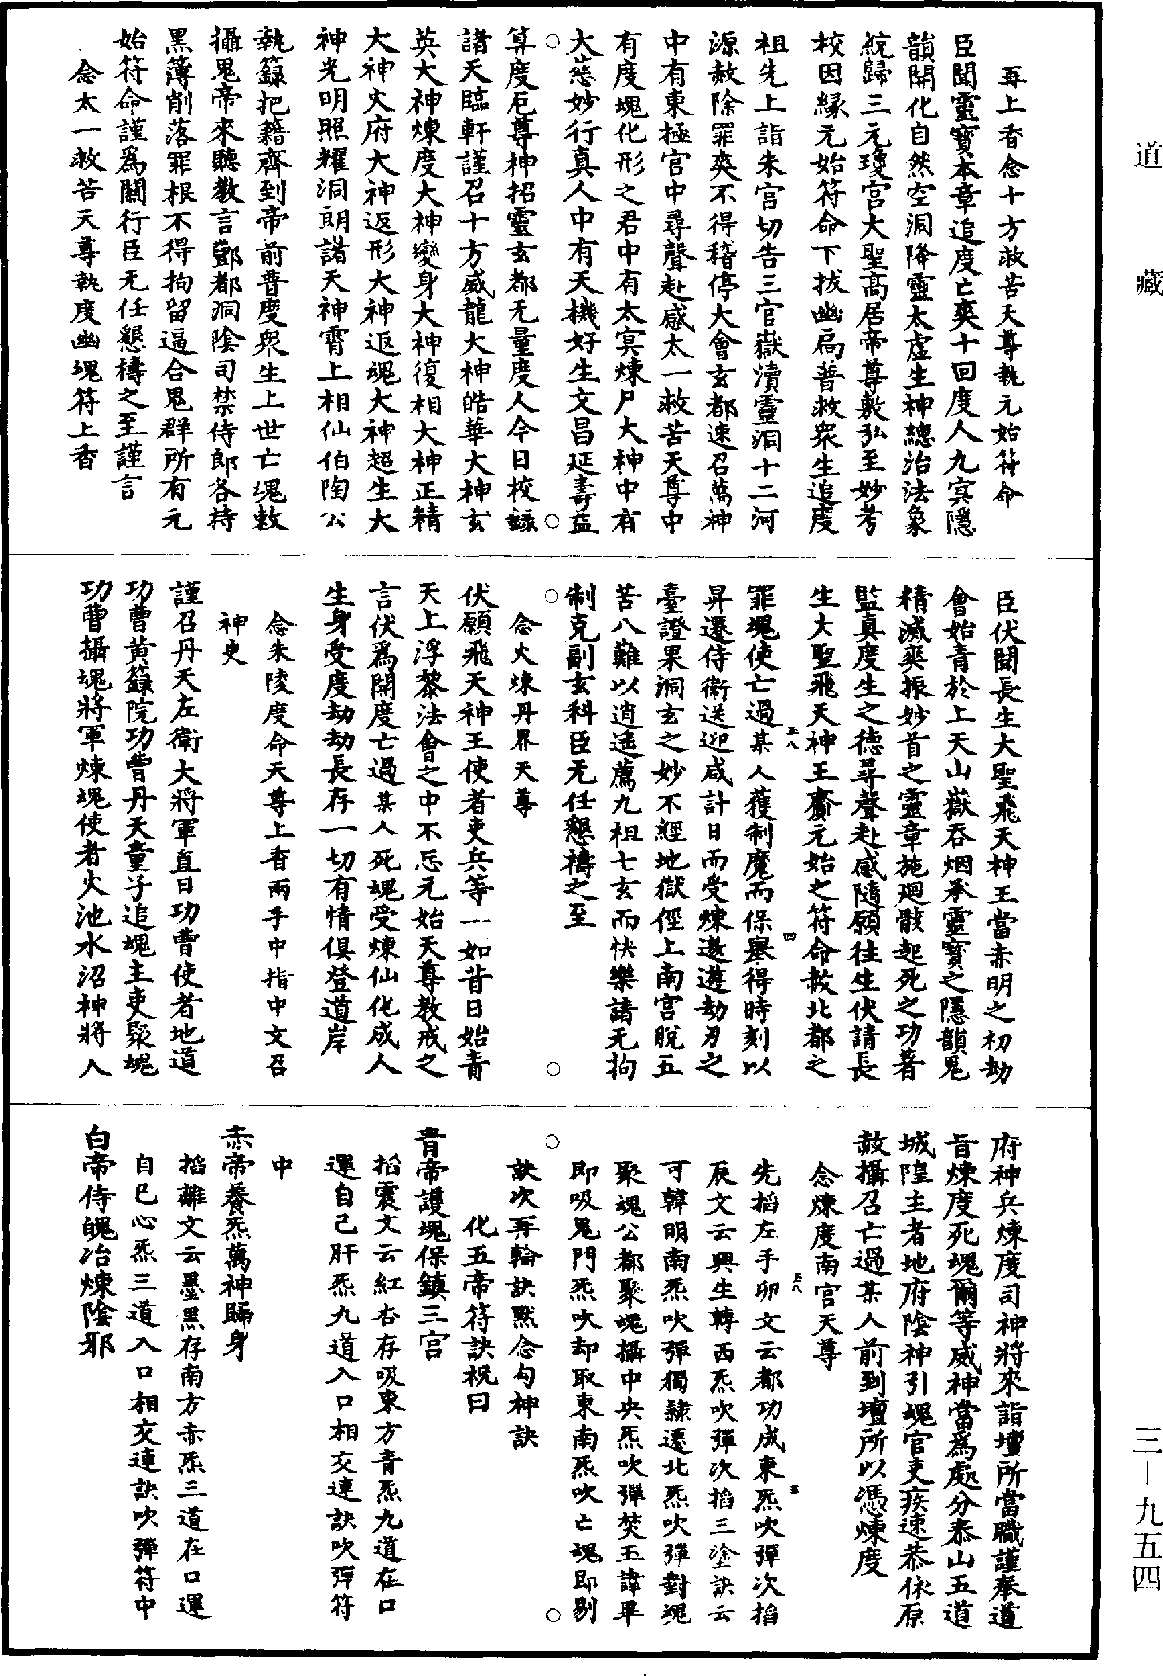 道藏
再上香念十方救苦天尊執元始符命
臣聞靈寶本章追度亡爽十回度人九冥隱
韻開化自然空洞降靈太虛生神總治法象
統歸三元瓊宮大聖高居帝尊敷弘至妙考
校因緣元始符命下拔幽扃普救眾生追度
祖先上詣朱宮切告三官嶽瀆靈洞十二河
源赦除罪爽不得稽停大會玄都速召萬神
中有東極宮中尋聲赴感太一救苦天尊中
有度魂化形之君中有太冥煉尸大神中有
大慈妙行真人中有天機好生文昌延壽益
算度厄尊神招靈玄都无量度人今日校錄
諸天臨軒謹召十方威龍大神皓華大神玄
英大神煉度大神變身大神復相大神正精
大神火府大神返形大神返魂大神超生大
神光明照耀洞朗諸天神霄上相仙伯陶公
執籙把籍齊到帝前普度眾生上世亡魂敕
攝鬼帝來聽教言酆都洞陰司禁侍郎各持
黑簿削落罪根不得拘留逼合鬼群所有元
始符命謹為關行臣无任懇禱之至謹言
念太一救苦天尊執度幽魂符上香
臣伏聞長生大聖飛天神王當赤明之初劫
會始青於上天山嶽吞烟承靈寶之隱韻鬼
精滅爽振妙首之靈章施廻骸起死之功著
監真度生之德尋聲赴感隨願往生伏請長
生大聖飛天神王齎元始之符命赦北都之
罪魂使亡過某人獲制魔而保舉得時刻以
昇遷侍衛送迎咸計日而受煉遨遊劫刃之
臺證果洞玄之妙不經地獄徑上南宮脫五
苦八難以逍遙薦九祖七玄而快樂請无拘
制克副玄科臣无任懇禱之至
念火煉丹界天尊
伏願飛天神王使者吏兵等一一如昔日始青
天上浮黎法會之中不忘元始天尊教戒之
言伏為開度亡過某人死魂受煉仙化成人
生身受度劫劫長存一切有情俱登道岸
念朱陵度命天尊上香兩手中指中文召
神吏
謹召丹天左衛大將軍直日功曹使者地道
功曹黃籙院功曹丹天童子追魂主吏聚魂
功曹攝魂將軍煉魂使者火池水沼神將人
府神兵煉度司神將來詣壇所當職謹奉道
旨煉度死魂爾等威神當為處分泰山五道
城隍主者地府陰神引魂官吏疾速恭依原
赦攝召亡過某人前到壇所以憑煉度
念煉度南宮天尊
先掐左手卯文云都功成東炁吹彈次掐
辰文云興生轉西炁吹彈次掐三塗訣云
可韓明南炁吹彈獨隸遷北炁吹彈對魂
聚魂公都聚魂攝中央炁吹彈焚王諱畢
即吸鬼門炁吹却取東南炁吹亡魂即剔
訣次再輪訣默念勾神訣
化五帝符訣祝曰
青帝護魂保鎮三宮
掐震文云紅杏存吸東方青炁九道在口
運自己肝炁九道入口相交連訣吹彈符
中
赤帝養炁萬神歸身
掐離文云墨黑存南方赤炁三道在口運
自己心炁三道入口相交連訣吹彈符中
白帝侍魄冶煉陰邪
三—九五四